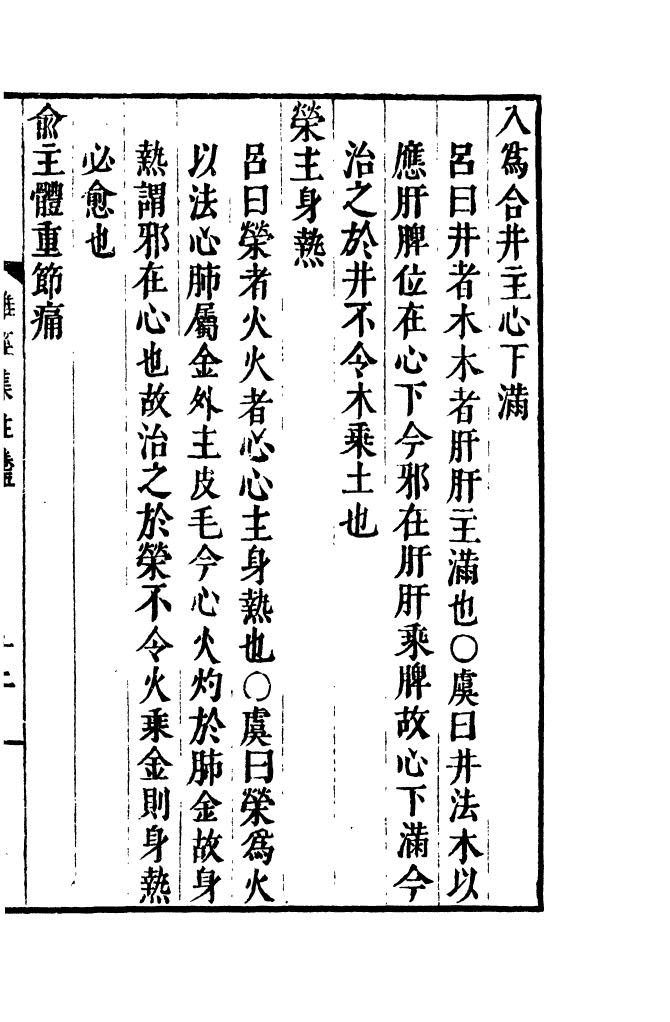 入爲合井主心下滿
呂曰井者木木者肝肝主滿也〇虞曰井法木以
應肝脾位在心下今邪在肝肝乘脾故心下滿今
治之於井不令木乘土也
榮主身熱
呂曰榮者火火者心心主身熱也〇虞曰榮爲火
以法心肺屬金外主皮毛今心火灼於肺金故身
熱謂邪在心也故治之於榮不令火乘金則身熱
必愈也
兪主體重節痛